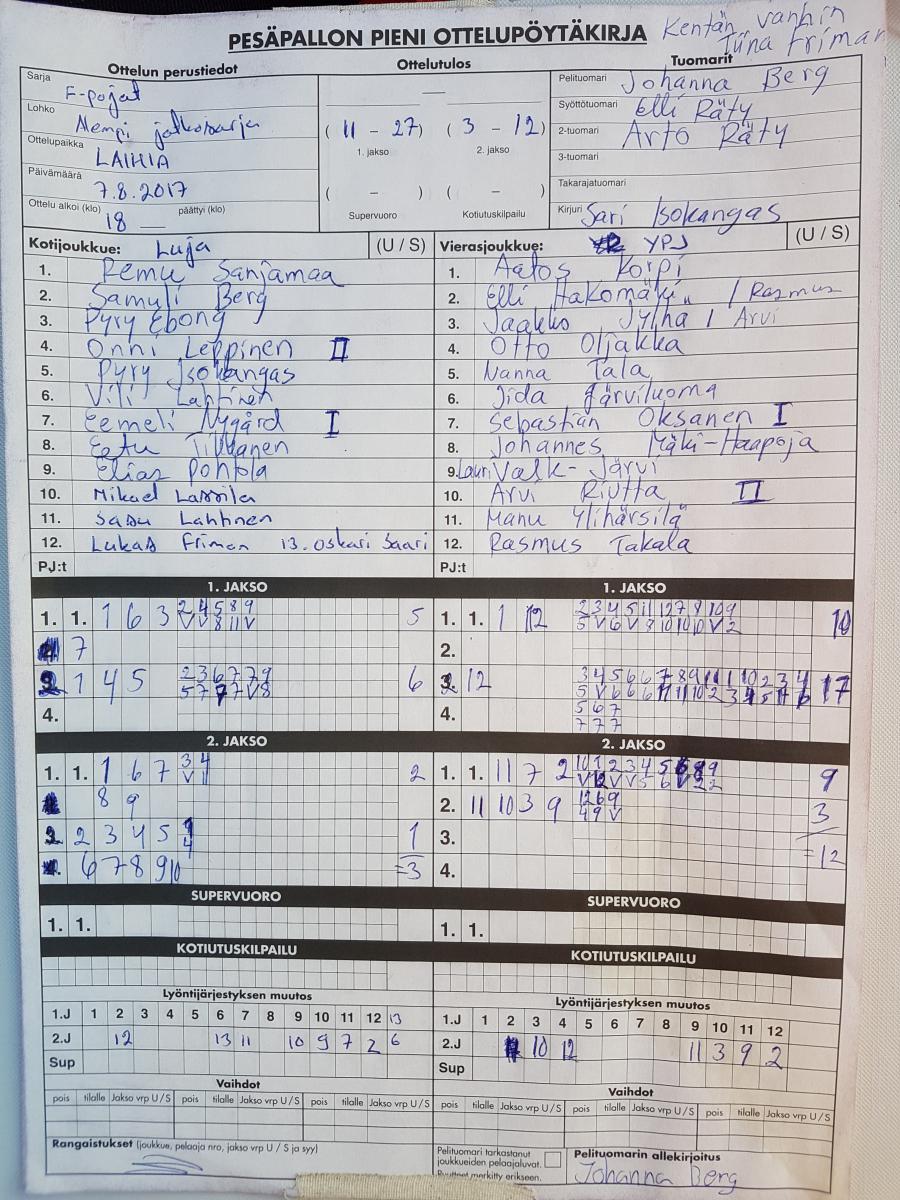 PESÄPALLON PIENI OTTELUPÖYTÄKIRJA
Kentän vanhin
Tiina Friman
Ottelun perustiedot
Ottelutulos
Tuomarit
Sarja
F-pojat
Lohko
Alempi jatkosarja
Ottelupaikka
LAIHIA
Päivämäärä
7.8.2017
Ottelu alkoi (klo) 18 päättyi (klo) —
—
( 11 – 27 ) ( 3 – 12 )
1. jakso 2. jakso
( – ) ( – )
Supervuoro Kotiutuskilpailu
Pelituomari Johanna Berg
Syöttötuomari Elli Räty
2-tuomari Arto Räty
3-tuomari
Takarajatuomari
Kirjuri Sari Isokangas
Kotijoukkue: Luja (U / S)
1. Remu Sanjamaa
2. Samuli Berg
3. Pyry Ebong
4. Onni Leppinen II
5. Pyry Isokangas
6. Vili Lahtinen
7. Eemeli Nygård I
8. Eetu
9. Elias Pohtola
10. Mikael Lassila
11. Sasu Lahtinen
12. Lukas Friman 13. Oskari Saari
PJ:t
Vierasjoukkue: YPJ (U / S)
1. Aatos Korpi
2. Elli Hakomäki / Rasmus
3. Jaakko Jylhä / Arvi
4. Otto Oljakka
5. Nanna Tala
6. Iida Järviluoma
7. Sebastian Oksanen I
8. Johannes Mäki-Haapoja
9. Lauri Valk-Järvi
10. Arvi Riutta II
11. Manu Ylihärsilä
12. Rasmus Takala
PJ:t
1. JAKSO
1. 1. 1 6 3 2 4 5 8 9 5
V V 8 11 V
7
1 4 5 2 3 6 7 7 9 6
5 7 7 7 V 8
4.
1. JAKSO
1. 1. 1 12 2 3 4 5 11 12 7 8 10 9 10
5 V 6 V 8 10 10 10 V 2
2.
3. 12 3 4 5 6 6 7 8 9 11 1 10 2 3 4 17
5 V 6 6 6 11 11 10 2 3 4 5 11 6
4. 5 6 7
7 7 7
2. JAKSO
1. 1. 1 6 7 3 4 2
V 1
8 9
3. 2 3 4 5 1
4
6 7 8 9 10 =3
2. JAKSO
1. 1. 11 7 2 10 1 2 3 4 5 6 8 9 9
V 12 V V 5 6 V 2 2
2. 11 10 3 9 12 6 9 3
4 9 V
3.
=12
4.
SUPERVUORO
1. 1.
SUPERVUORO
1. 1.
KOTIUTUSKILPAILU
KOTIUTUSKILPAILU
Lyöntijärjestyksen muutos
1.J 1 2 3 4 5 6 7 8 9 10 11 12 13
2.J 12 13 11 10 9 7 2 6
Sup
Lyöntijärjestyksen muutos
1.J 1 2 3 4 5 6 7 8 9 10 11 12
2.J 10 12 11 3 9 2
Sup
Vaihdot
pois tilalle Jakso vrp U / S pois tilalle Jakso vrp U / S pois tilalle Jakso vrp U / S
Vaihdot
pois tilalle Jakso vrp U / S pois tilalle Jakso vrp U / S pois tilalle Jakso vrp U / S
Rangaistukset (joukkue, pelaaja nro, jakso vrp U / S ja syy)
Pelituomari tarkastanut
joukkueiden pelaajaluvat.
Puutteet merkitty erikseen.
Pelituomarin allekirjoitus
Johanna Berg